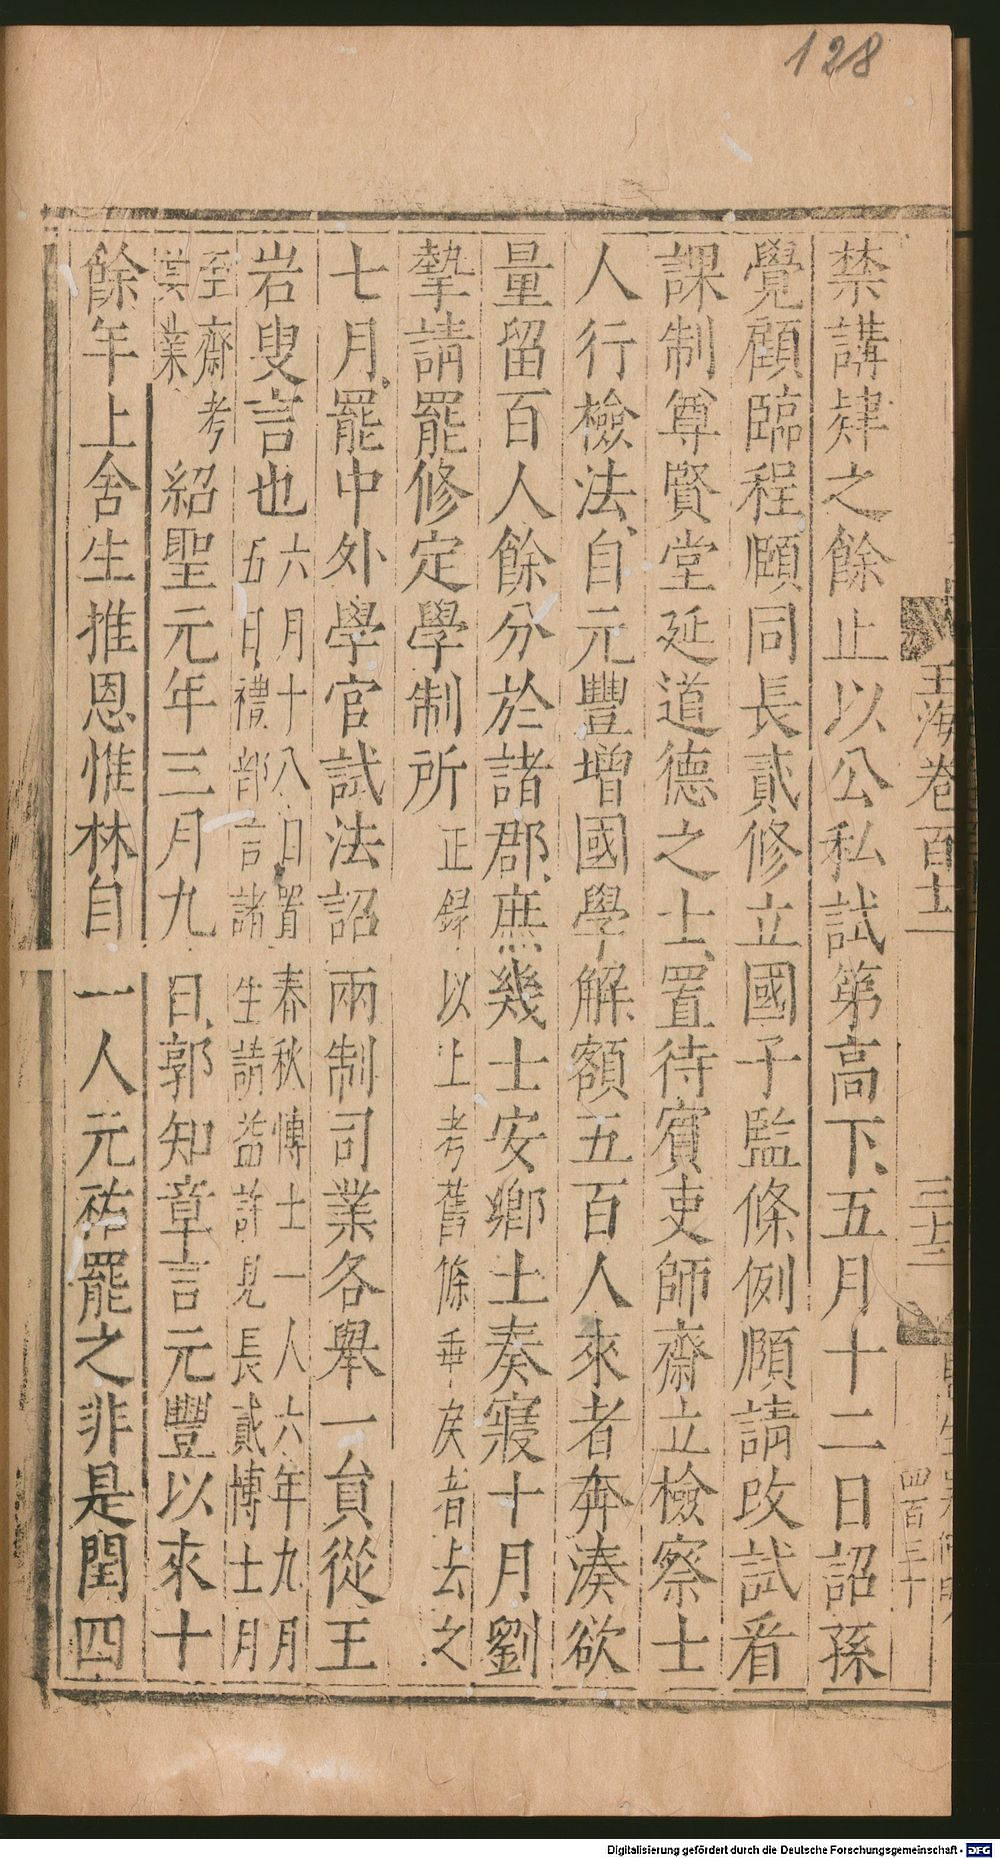 128
玉海卷百十一
三十二
四百三十
禁講肄之餘止以公私試第高下五月十二日詔孫
覺顧臨程頤同長貳修立國子監條例頤請改試爲
課制尊賢堂延道德之士置待賓吏師齋立檢察士
人行檢法自元豐增國學解額五百人來者奔湊欲
量留百人餘分於諸郡庶幾士安鄉土奏寢十月劉
摯請罷修定學制所正錄以上考舊條乖戾者去之
七月罷中外學官試法詔兩制司業各舉一員從王
岩叟言也六月十八日置春秋博士一人六年九月
五日禮部言諸生請益許見長貳博士月
至齋考
其業紹聖元年三月九日郭知章言元豐以來十
餘年上舍生推恩惟林自一人元祐罷之非是閏四
Digitalisierung gefördert durch die Deutsche Forschungsgemeinschaft - DFG